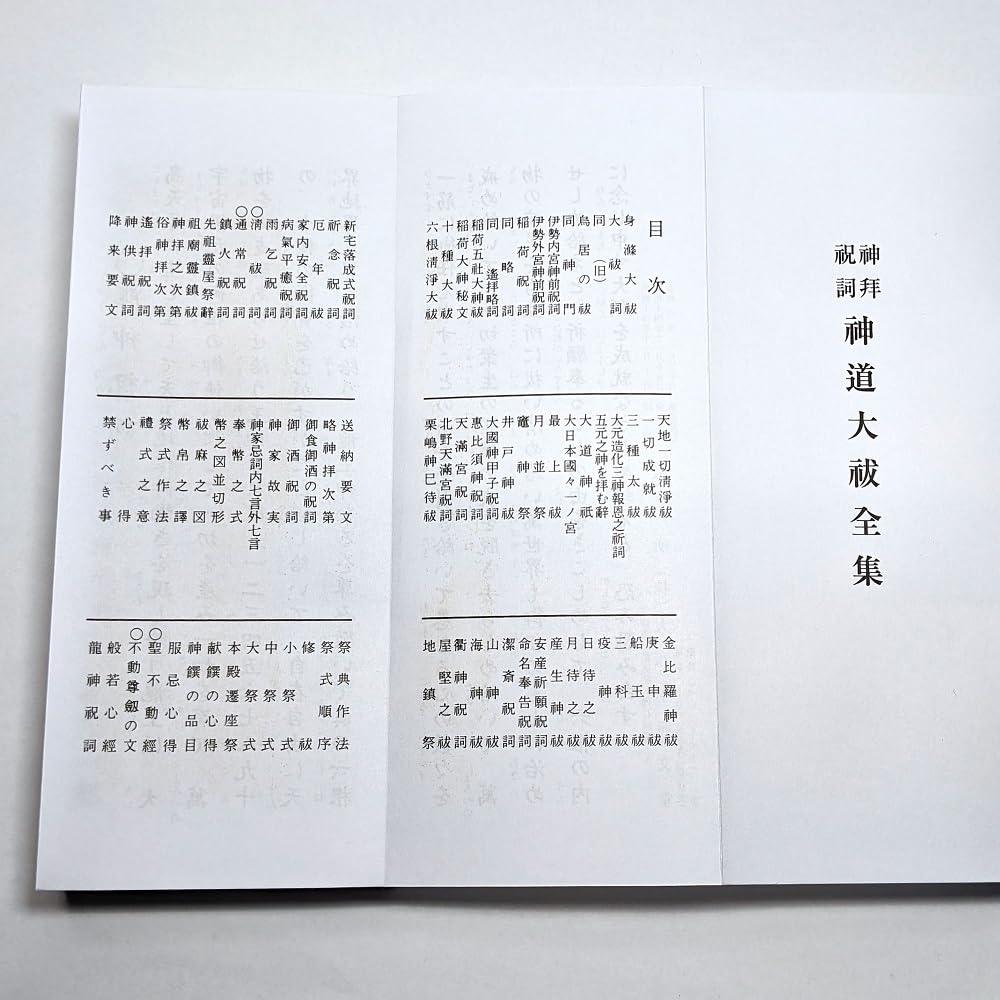 神拜祝詞 神道大祓全集
目次
身滌大祓
大祓詞
同(旧)
鳥居の祓
同神門
伊勢内宮神前祝詞
伊勢外宮神前祝詞
稲荷祝詞
同略詞
同遙拝略詞
稲荷五社大神祓
稲荷大神秘文
十種大祓
六根清淨大祓
天地一切清淨祓
一切成就祓
三種太祓
大元造化三神報恩之祈詞
五元之神を拝む辭
大道神祇
大日本國々一ノ宮
最上祓
月並祭
竈神祭
井戸神祓
大國神甲子祝詞
惠比須神祝詞
天滿宮祝詞
北野天滿宮祝詞
栗嶋神巳待祓
金比羅神祓
庚申祓
船玉祓
三科祓
疫神祓
日待之祓
月待之祓
産生神祓
安産祈願祝詞
命名奉告祝詞
潔斎祝詞
山神祓
海神祓
衢神祝詞
屋堅之祓
地鎮祭
新宅落成式祝詞
祈念祝詞
厄年祓
病氣平癒祝詞
家内安全祝詞
雨乞祝詞
○清祓詞
○通常祝詞
鎮火祝詞
先祖靈屋祭辭
祖廟靈鎮祓
神拝之次第
俗神拝次第
遙拝祝詞
神供祝詞
降来要文
送納要文
略神拝次第
御食御酒の祝詞
御酒祝詞
神家故実
神家忌詞内七言外七言
奉幣之式
幣之図並切形
祓麻之図
幣帛之譯
祭式作法
禮式之意
心得
禁ずべき事
祭典作法
祭式順序
修祓
小祭式
中祭式
大祭式
本殿遷座祭
献饌の心得
神饌の品目
服忌心得
○聖不動經
○不動尊劔の文
般若心經
龍神祝詞